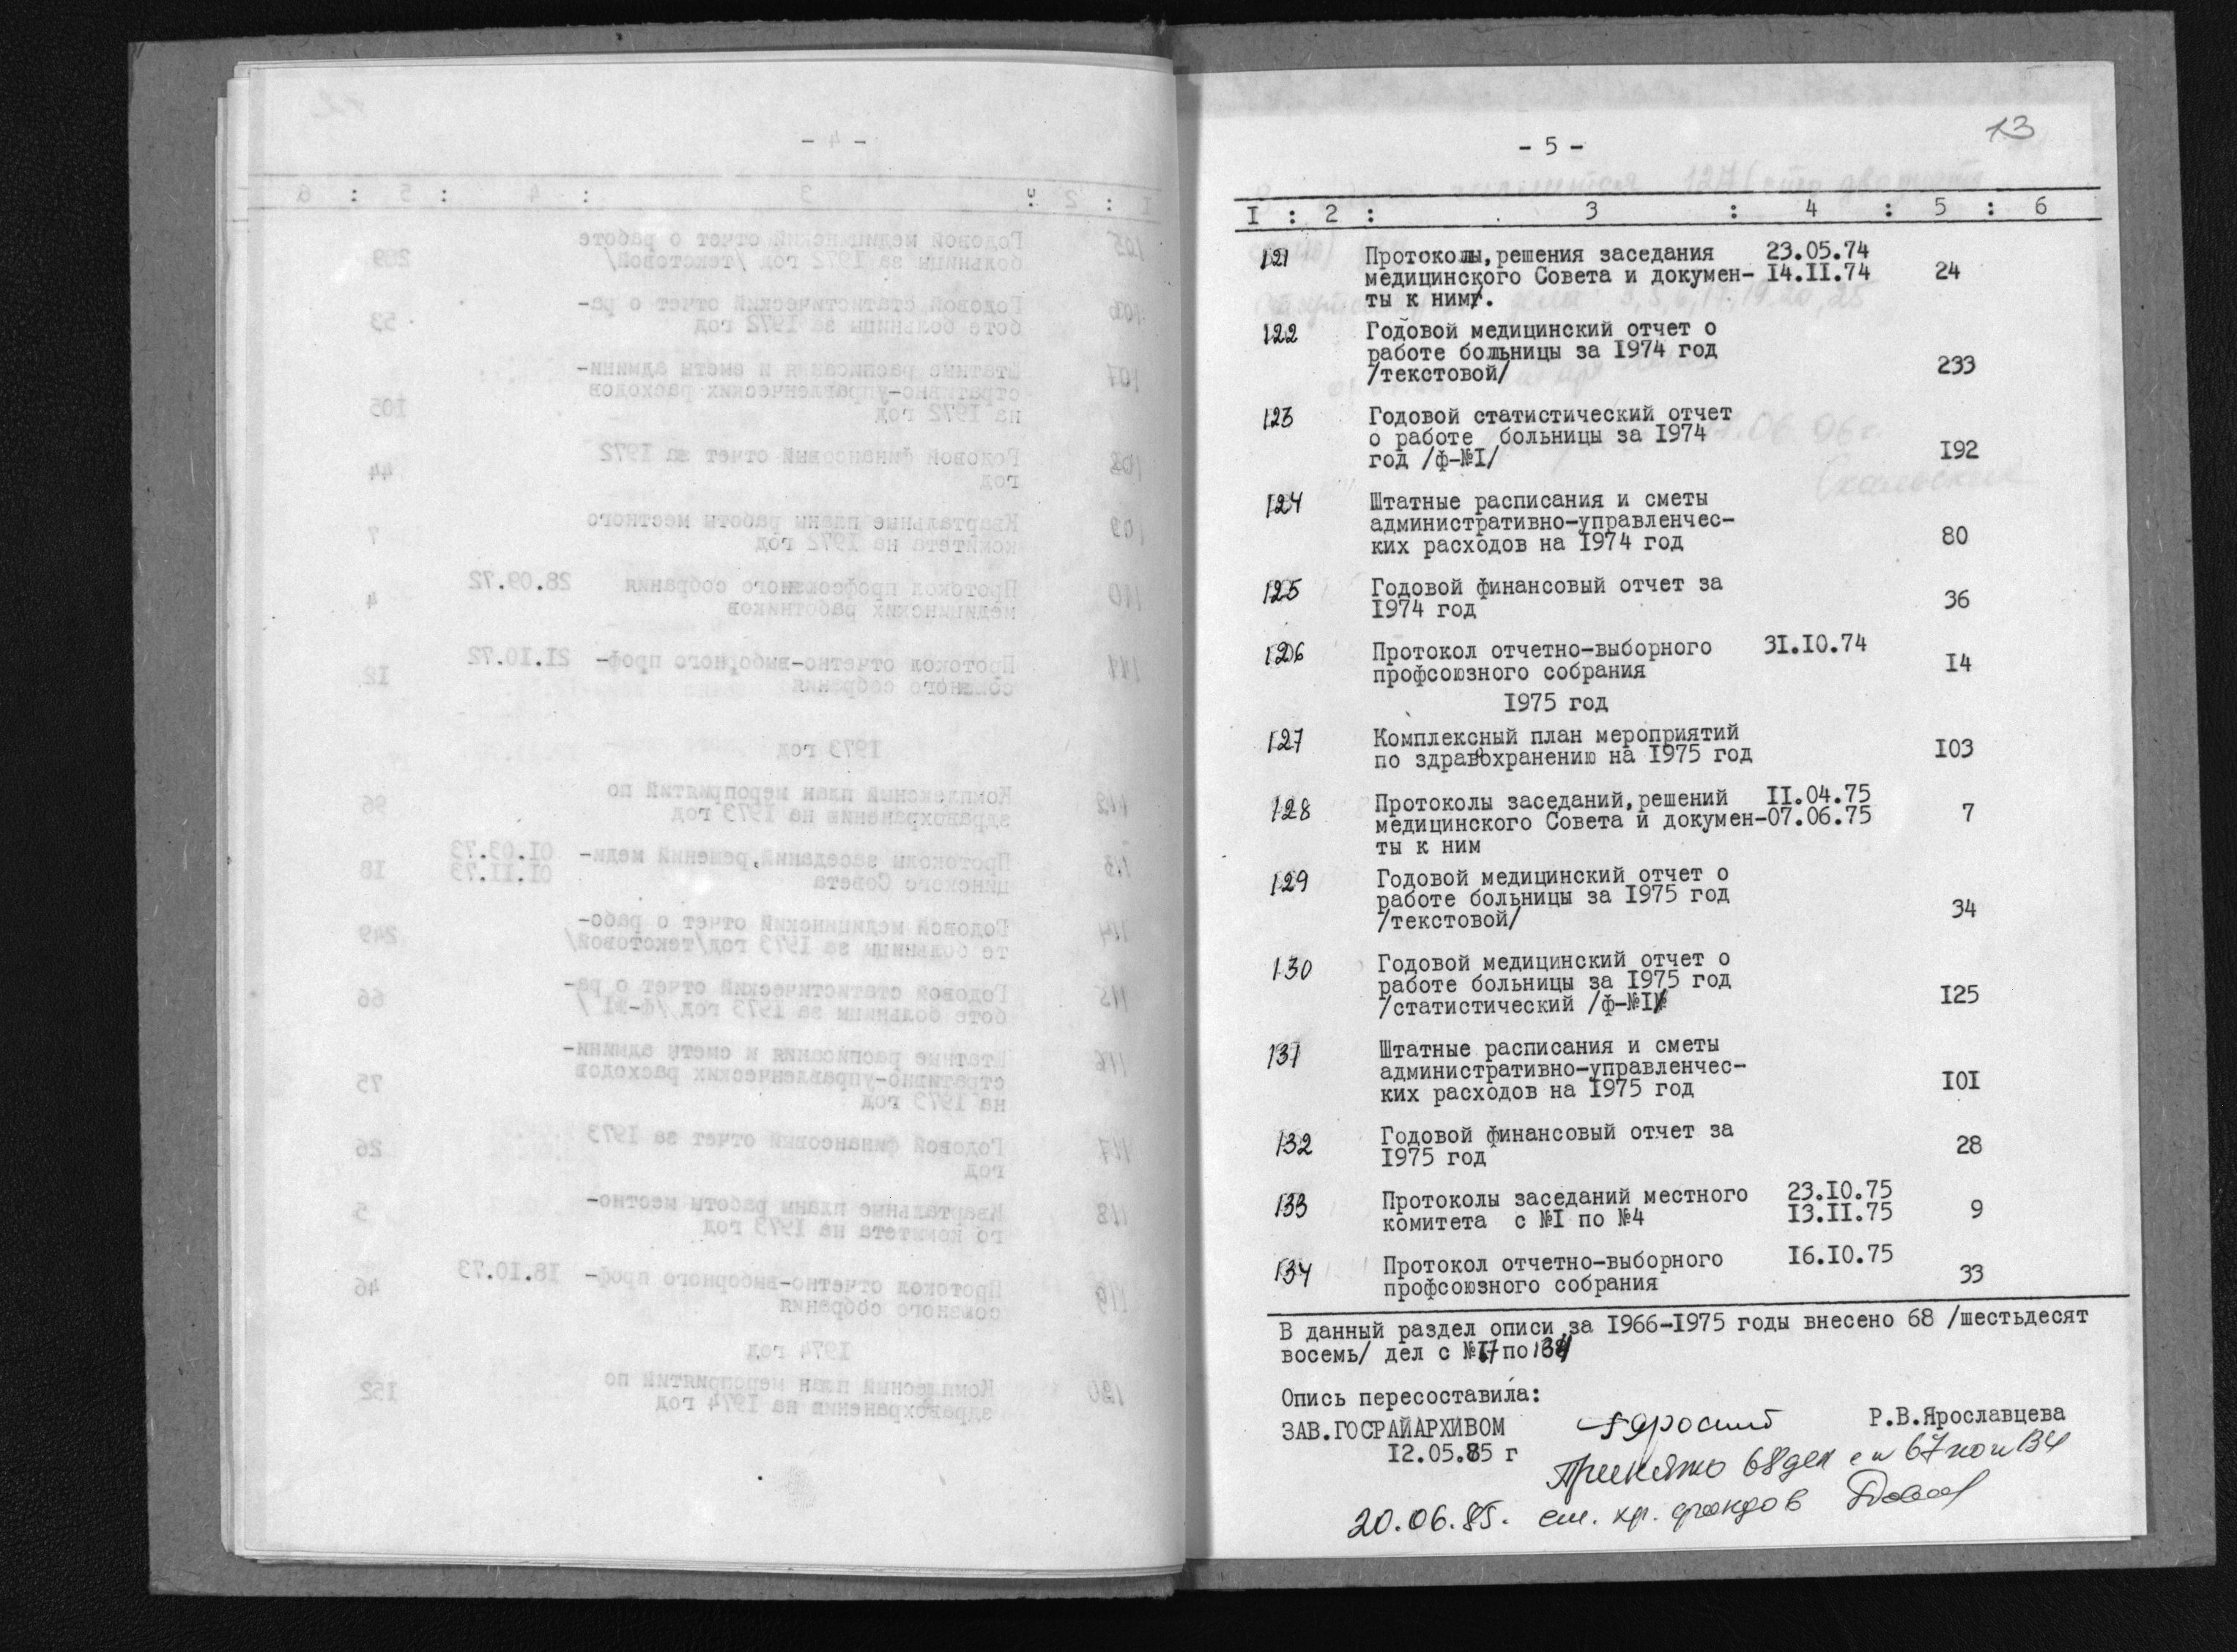 13
- 5 -
I : 2 : 3 : 4 : 5 : 6
121 Протоколы,решения заседания 23.05.74
медицинского Совета и докумен- I4.II.74 24
ты к ним.
122 Годовой медицинский отчет о
работе больницы за I974 год
/текстовой/ 233
123 Годовой статистический отчет
о работе больницы за I974
год /ф-№I/ I92
124 Штатные расписания и сметы
административно-управленчес-
ких расходов на I974 год 80
125 Годовой финансовый отчет за
I974 год 36
126 Протокол отчетно-выборного 3I.I0.74
профсоюзного собрания I4
I975 год
127 Комплексный план мероприятий
по здравохранению на I975 год I03
128 Протоколы заседаний,решений II.04.75
медицинского Совета и докумен-07.06.75 7
ты к ним
129 Годовой медицинский отчет о
работе больницы за I975 год
/текстовой/ 34
130 Годовой медицинский отчет о
работе больницы за I975 год
/статистический /ф-№I/ I25
131 Штатные расписания и сметы
административно-управленчес-
ких расходов на I975 год I0I
132 Годовой финансовый отчет за
I975 год 28
133 Протоколы заседаний местного 23.I0.75
комитета с №I по №4 I3.II.75 9
134 Протокол отчетно-выборного I6.I0.75
профсоюзного собрания 33
В данный раздел описи за I966-I975 годы внесено 68 /шестьдесят
восемь/ дел с № по 134
Опись пересоставила:
ЗАВ.ГОСРАЙАРХИВОМ Р.В.Ярославцева
I2.05.85 г
Принято 68 дел с н 67 по н 134
20.06.85. ст. хр. фондов